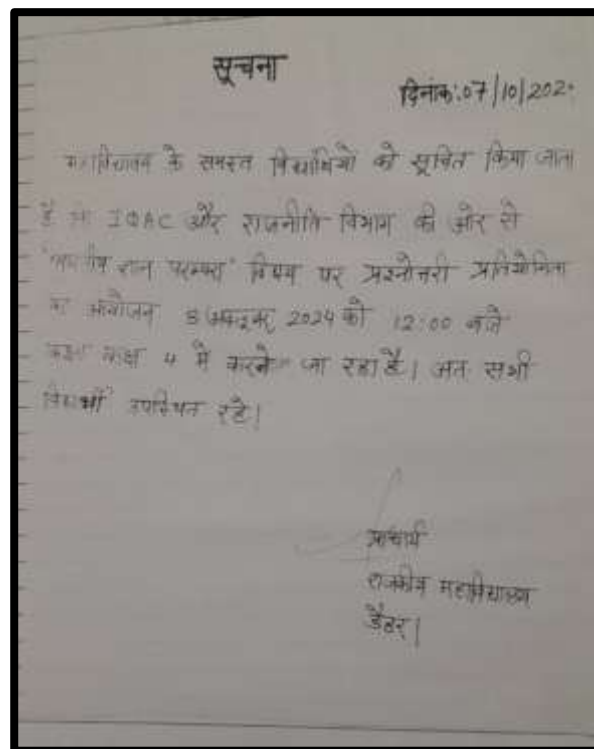 सूचना
दिनांक:07/10/202
महाविद्यालय के समस्त विद्यार्थियों को सूचित किया जाता
है कि IQAC और राजनीति विभाग की ओर से
ज्ञान परम्परा' विषय पर प्रश्नोत्तरी प्रतियोगिता
का आयोजन 8 अक्टूबर 2024 को 12:00 बजे
कक्ष 4 में करने जा रहा है। अत सभी
विद्यार्थी उपस्थित रहे।
प्राचार्य
राजकीय महाविद्यालय